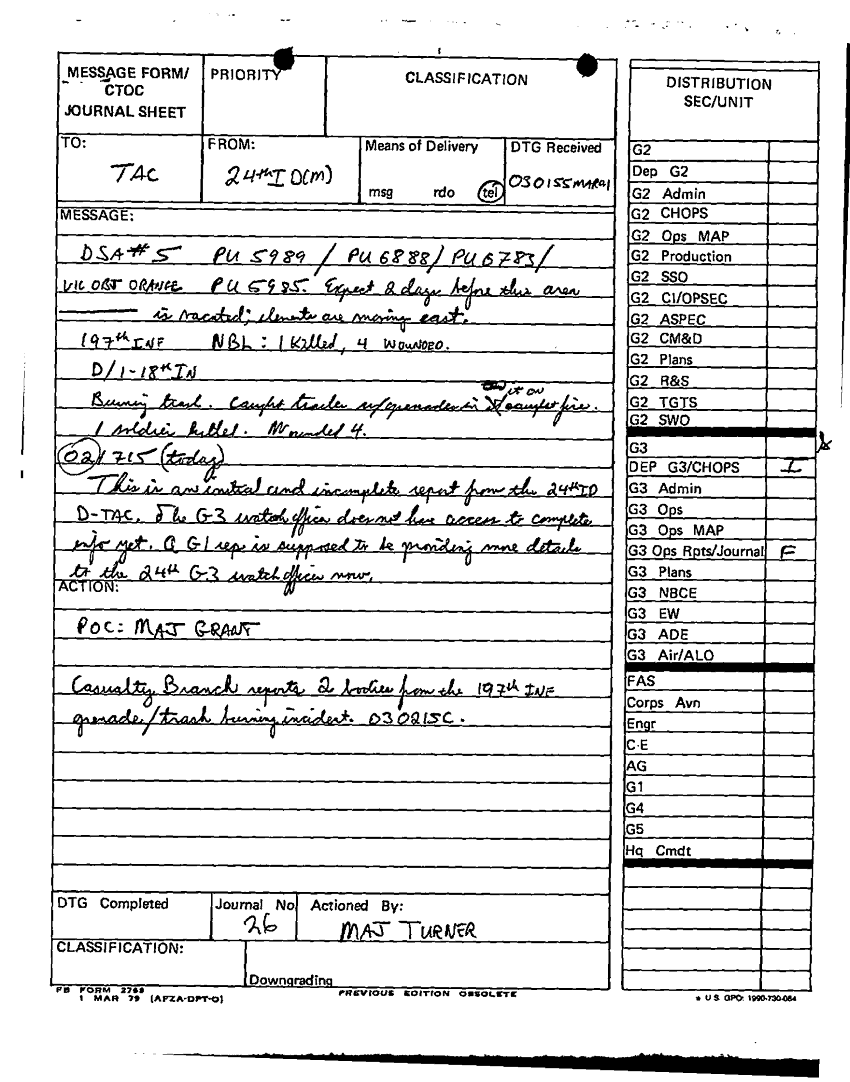 MESSAGE FORM/
CTOC
JOURNAL SHEET
PRIORITY
CLASSIFICATION
TO:
TAC
FROM:
24th ID(M)
Means of Delivery
msg rdo tel
DTG Received
030155MAR91
MESSAGE:
DSA # 5 PU 5989 / PU 6888/ PU 6783/
VIC OBJ ORANGE PU 5985. Expect 2 days before this area
is vacated; elements are moving east.
197th INF NBL: 1 Killed, 4 WOUNDED.
D/1-18th IN
it on
Burning trash. Caught trailer w/grenades in caught fire.
1 soldier killed. Wounded 4.
021715 (today)
This is an initial and incomplete report from the 24th ID
D-TAC. The G3 watch officer does not have access to complete
info yet. A G1 rep is supposed to be providing more details
to the 24th G-3 watch officer now.
ACTION:
POC: MAJ GRANT
Casualty Branch reports 2 bodies from the 197th INF
grenade/trash burning incident. 030215C.
DTG Completed
Journal No
26
Actioned By:
MAJ TURNER
CLASSIFICATION:
Downgrading
FB FORM 2769
1 MAR 79 (AFZA-DPT-O)
PREVIOUS EDITION OBSOLETE
DISTRIBUTION
SEC/UNIT
G2
Dep G2
G2 Admin
G2 CHOPS
G2 Ops MAP
G2 Production
G2 SSO
G2 CI/OPSEC
G2 ASPEC
G2 CM&D
G2 Plans
G2 R&S
G2 TGTS
G2 SWO
G3
DEP G3/CHOPS I
G3 Admin
G3 Ops
G3 Ops MAP
G3 Ops Rpts/Journal F
G3 Plans
G3 NBCE
G3 EW
G3 ADE
G3 Air/ALO
FAS
Corps Avn
Engr
C-E
AG
G1
G4
G5
Hq Cmdt
* U S GPO: 1990-730-064